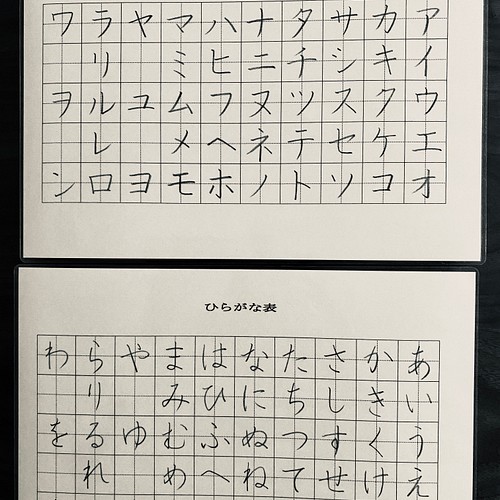 ワラヤマハナタサカア
リミヒニチシキイ
ヲルユムフヌツスクウ
レメヘネテセケエ
ンロヨモホノトソコオ
ひらがな表
わらやまはなたさかあ
りみひにちしきい
をるゆむふぬつすくう
れめへねてせけえ